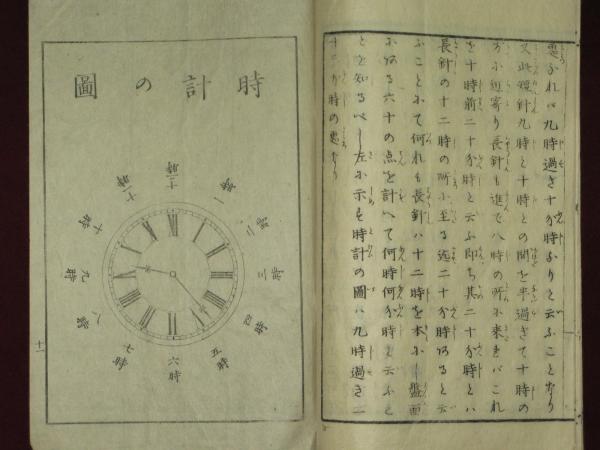 悪ふれハ九時過き十分時なりと云ふことなり
又此短針九時と十時との間を半過きて十時の
方に近寄り長針も進て八時の所に来きバこれ
を十時前二十分時と云ふ即ち其二十分時とハ
長針の十二時の所に至る迄二十分時ありると云
ふことにて何れも長針ハ十二時を本にし盤面
にある六十の点を計へて何時何分時と云ふこ
とを知るべし左に示す時計の圖ハ九時過き一
時計の圖
十二時
一時
二時
三時
四時
五時
六時
七時
八時
九時
十時
十一時
十一